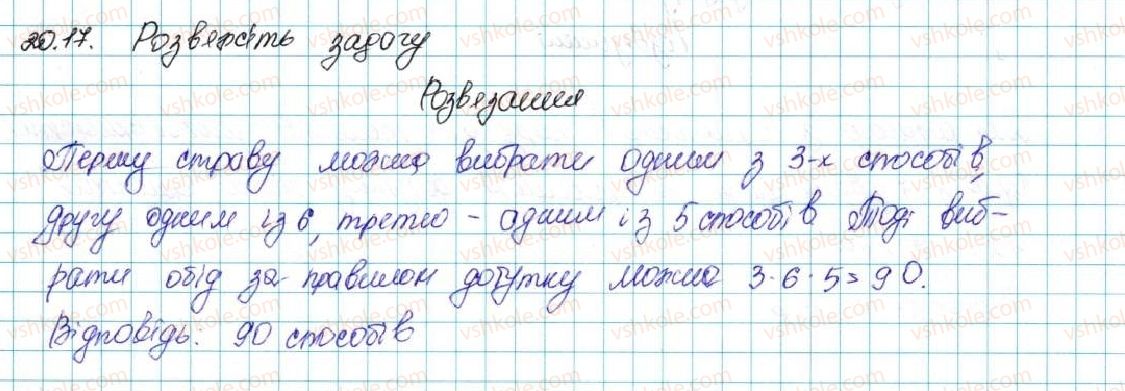 20.17. Розвяжіть задачу
Розвязання
Першу страву можна вибрати одним з 3-х способів,
другу одним із 6, третю - одним із 5 способів Тоді виб-
рати обід за правилом добутку можна 3·6·5=90.
Відповідь: 90 способів